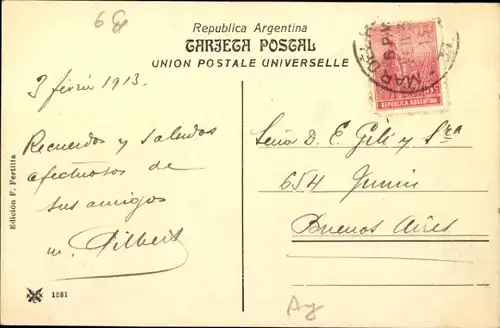 6
Republica Argentina
TARJETA POSTAL
UNION POSTALE UNIVERSELLE
MAR DEL
6 P.M.
REPUBLICA ARGENTINA
3 févrir 1913.
Recuerdos y saludos
afectuosos de
sus amigos
m. Gilbert
Señor D. E. Gili y Sra
654 Junin
Buenos Aires
Edición F. Fertitta
1281